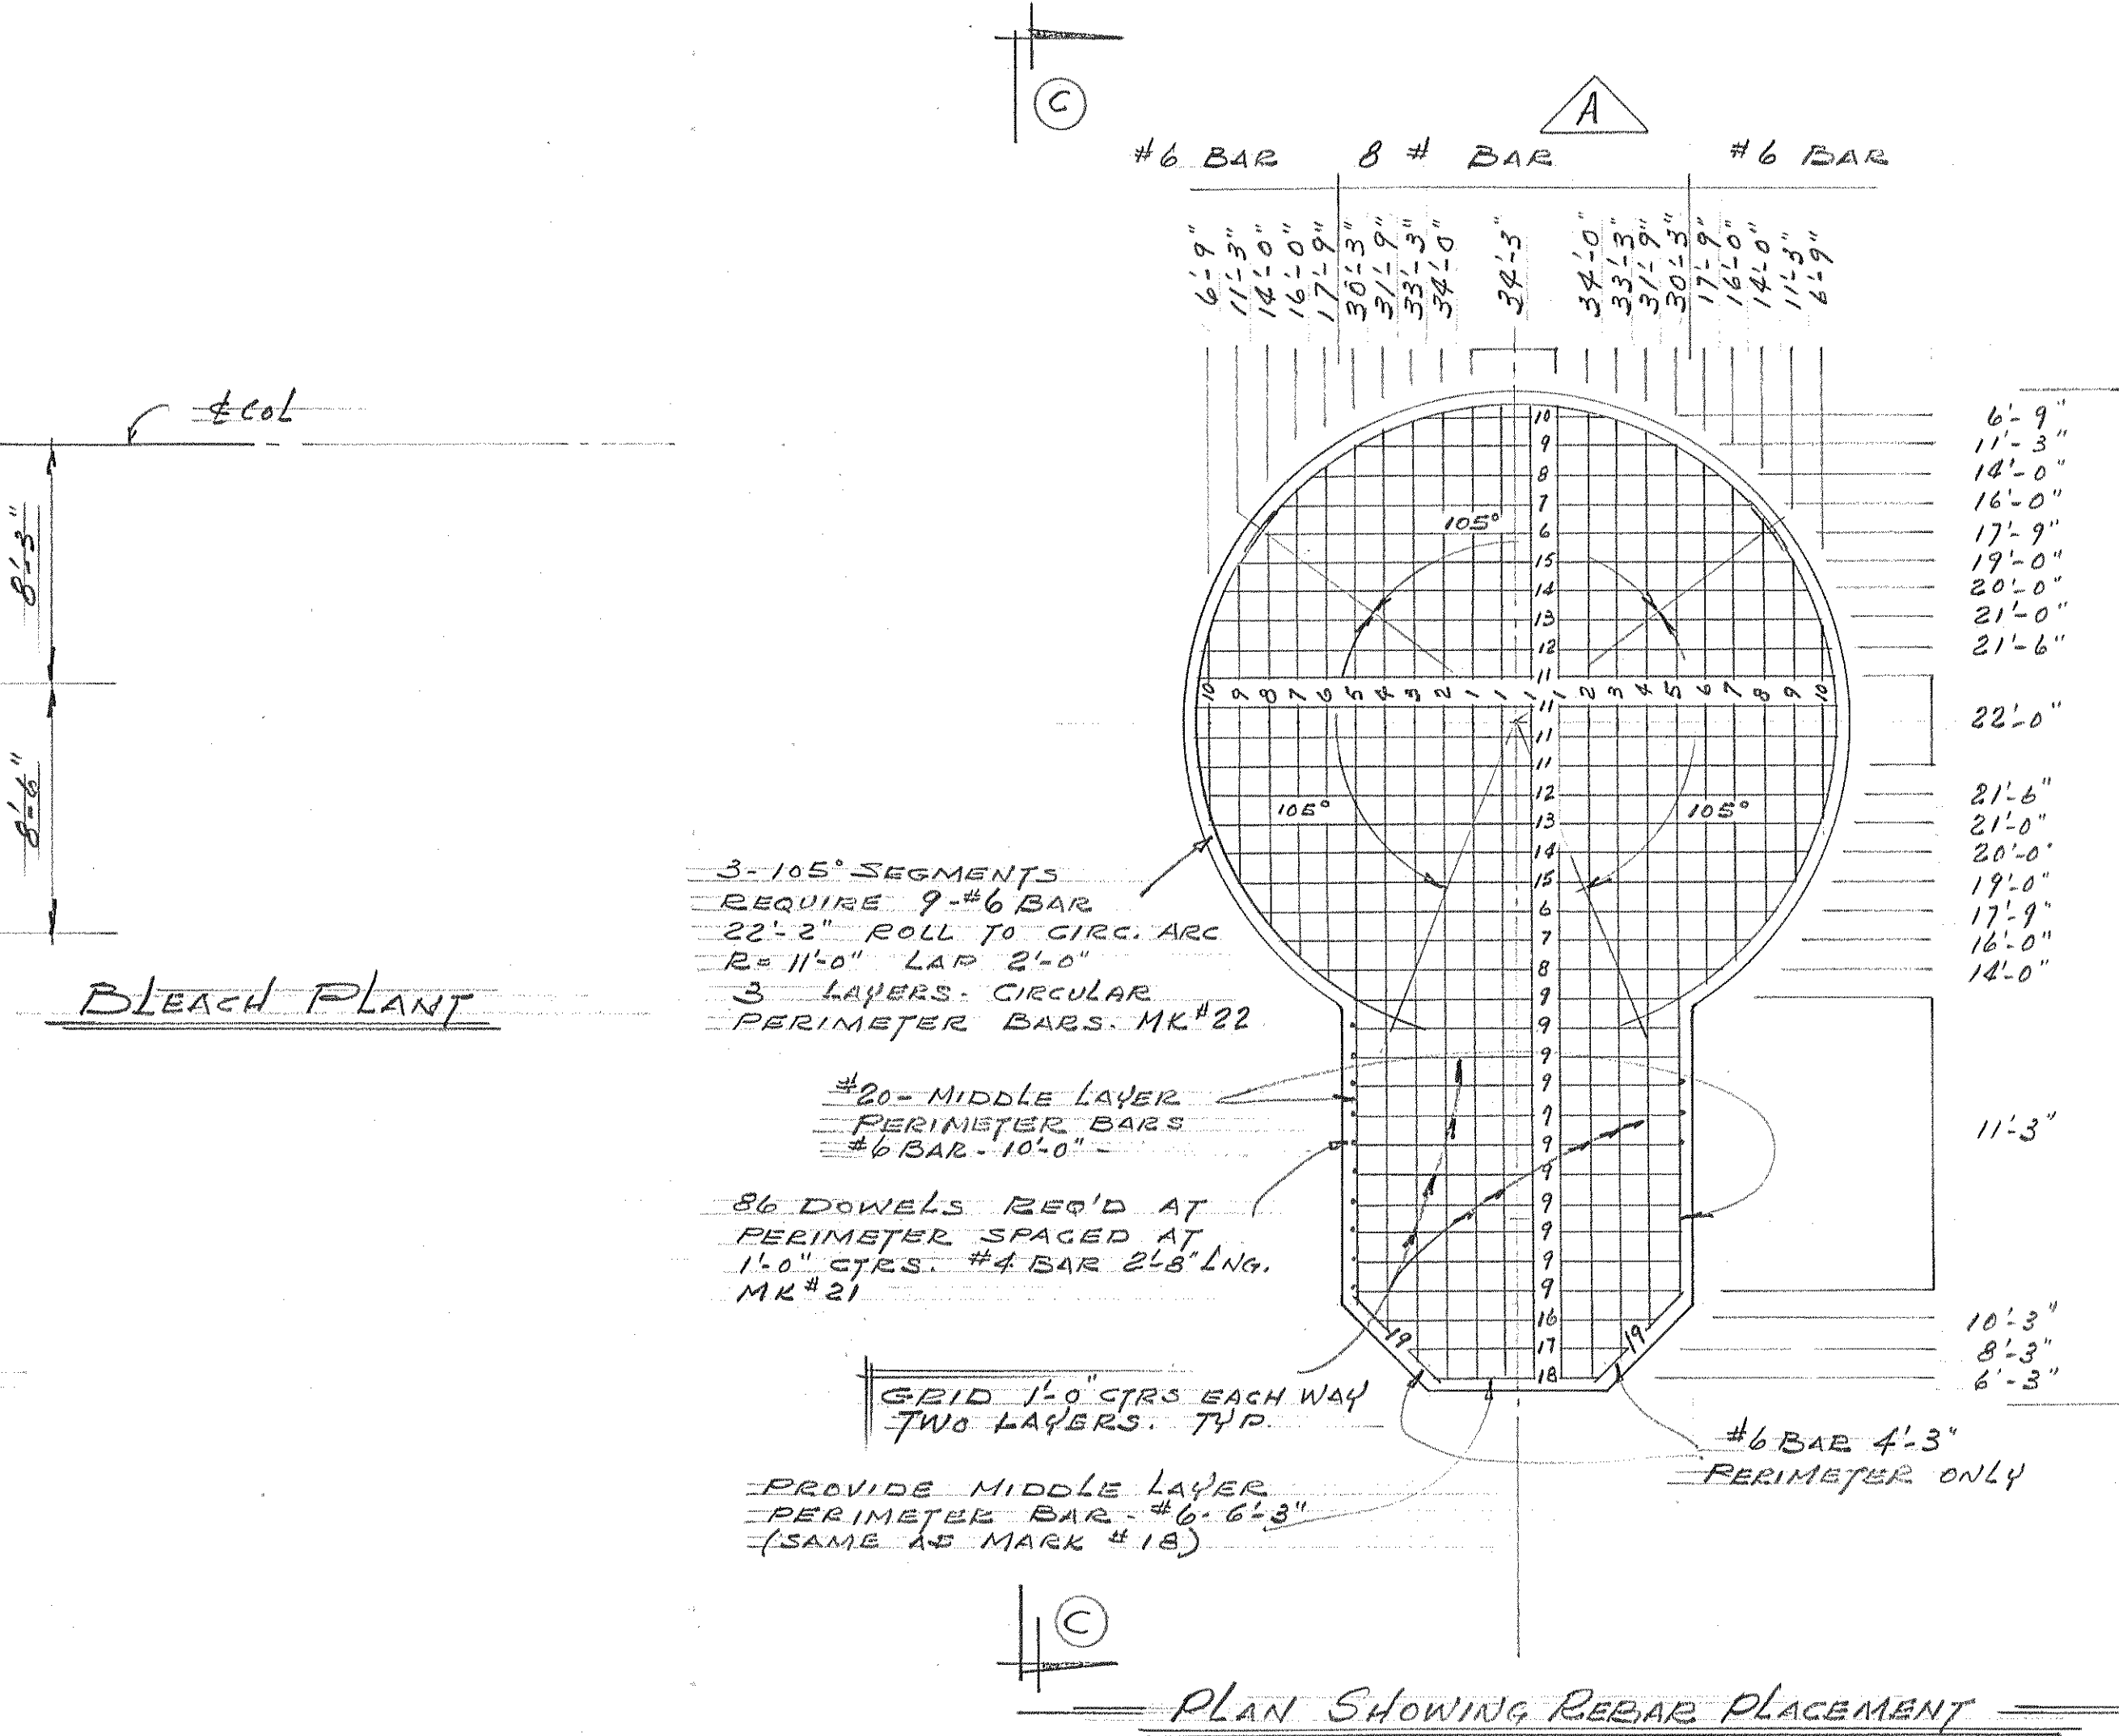 C
A
#6 BAR 8 # BAR #6 BAR
6'-9" 11'-3" 14'-0" 16'-0" 17'-9" 30'-3" 31'-9" 33'-3" 34'-0" 34'-3" 34'-0" 33'-3" 31'-9" 30'-3" 17'-9" 16'-0" 14'-0" 11'-3" 6'-9"
℄ COL
8'-3"
8'-6"
BLEACH PLANT
10
9
8
7
6
15
14
13
12
11
10 9 8 7 6 5 4 3 2 1 1 1 1 2 3 4 5 6 7 8 9 10
11
11
11
12
13
14
15
6
7
8
9
9
9
9
9
9
9
9
9
9
9
16
17
18
19
19
105°
105°
105°
6'-9"
11'-3"
14'-0"
16'-0"
17'-9"
19'-0"
20'-0"
21'-0"
21'-6"
22'-0"
21'-6"
21'-0"
20'-0"
19'-0"
17'-9"
16'-0"
14'-0"
11'-3"
10'-3"
8'-3"
6'-3"
3-105° SEGMENTS
REQUIRE 9-#6 BAR
22'-2" ROLL TO CIRC. ARC
R= 11'-0" LAP 2'-0"
3 LAYERS- CIRCULAR
PERIMETER BARS. MK#22
#20- MIDDLE LAYER
PERIMETER BARS
#6 BAR- 10'-0" -
86 DOWELS REQ'D AT
PERIMETER SPACED AT
1'-0" CTRS. #4 BAR 2'-8" LNG.
MK#21
GRID 1'-0" CTRS EACH WAY
TWO LAYERS. TYP.
#6 BAR 4'-3"
PERIMETER ONLY
PROVIDE MIDDLE LAYER
PERIMETER BAR- #6- 6'-3"
(SAME AS MARK #18)
C
PLAN SHOWING REBAR PLACEMENT